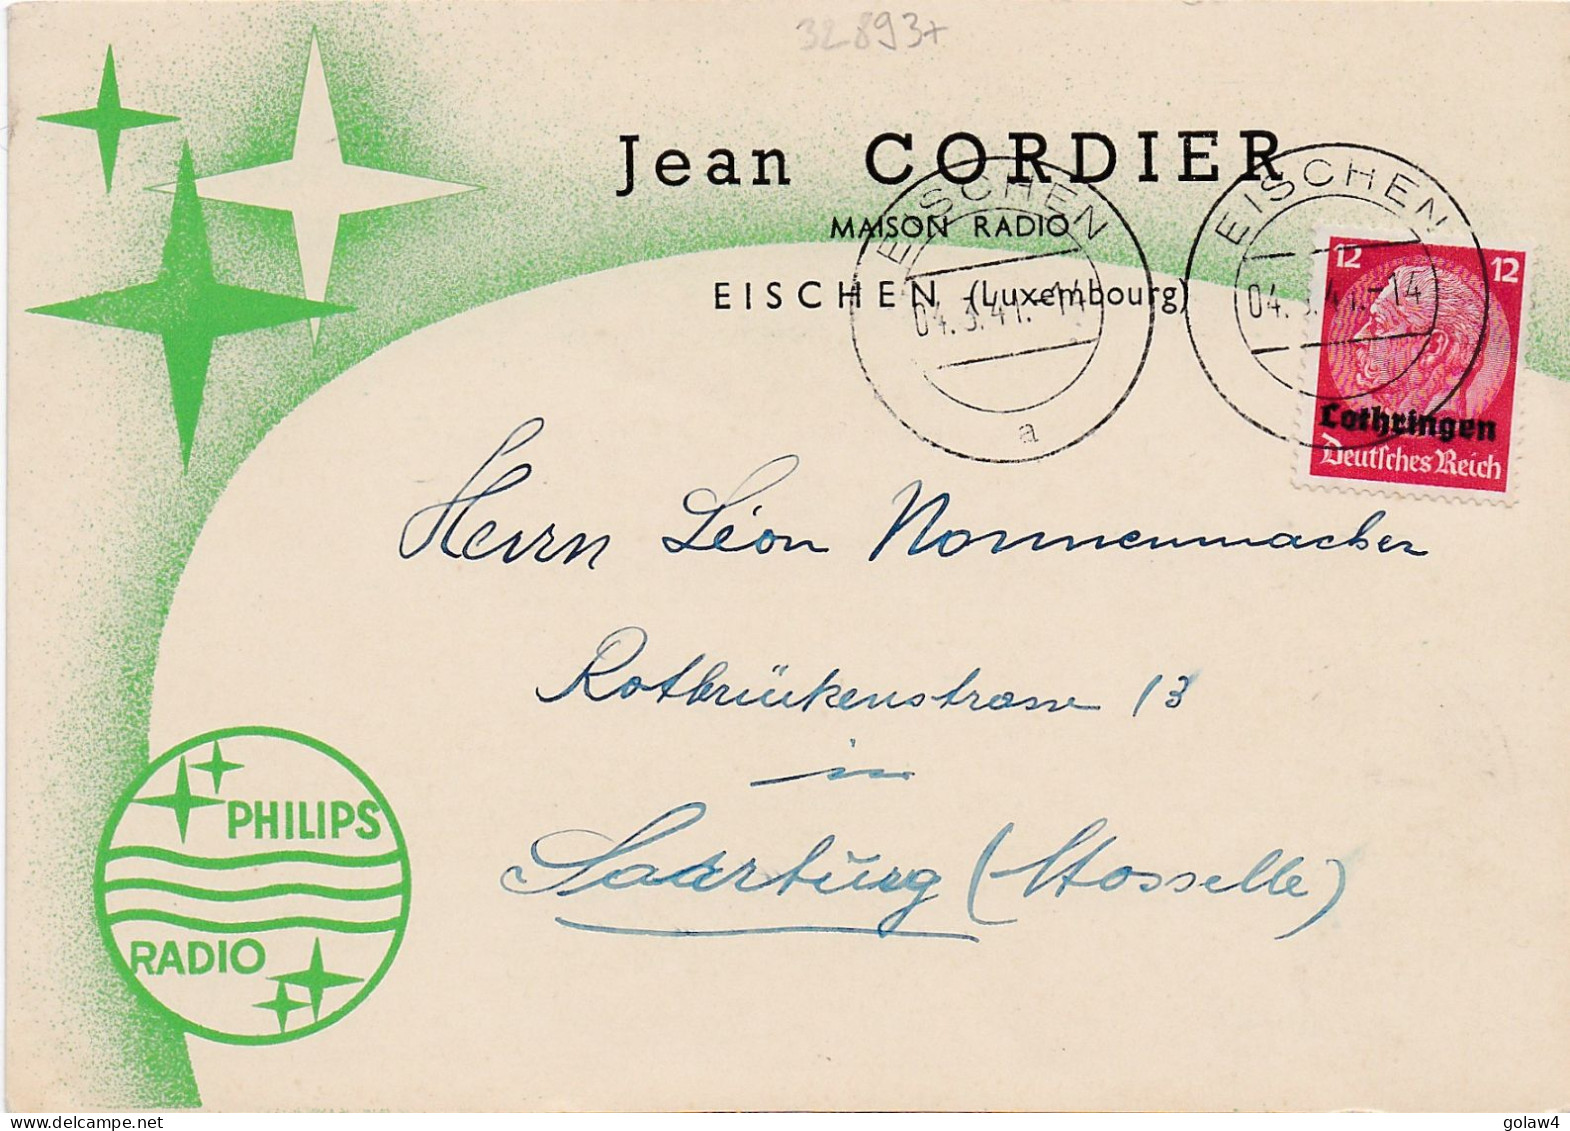 32893+
Jean CORDIER
MAISON RADIO
EISCHEN (Luxembourg)
EISCHEN
04.3.41.-14
a
EISCHEN
04.3.41.-14
12 12
Lothringen
Deutsches Reich
Herrn Léon Nonnenmacher
Rotbrückenstrasse 13
in
Saarburg (Mosselle)
PHILIPS
RADIO
golaw4